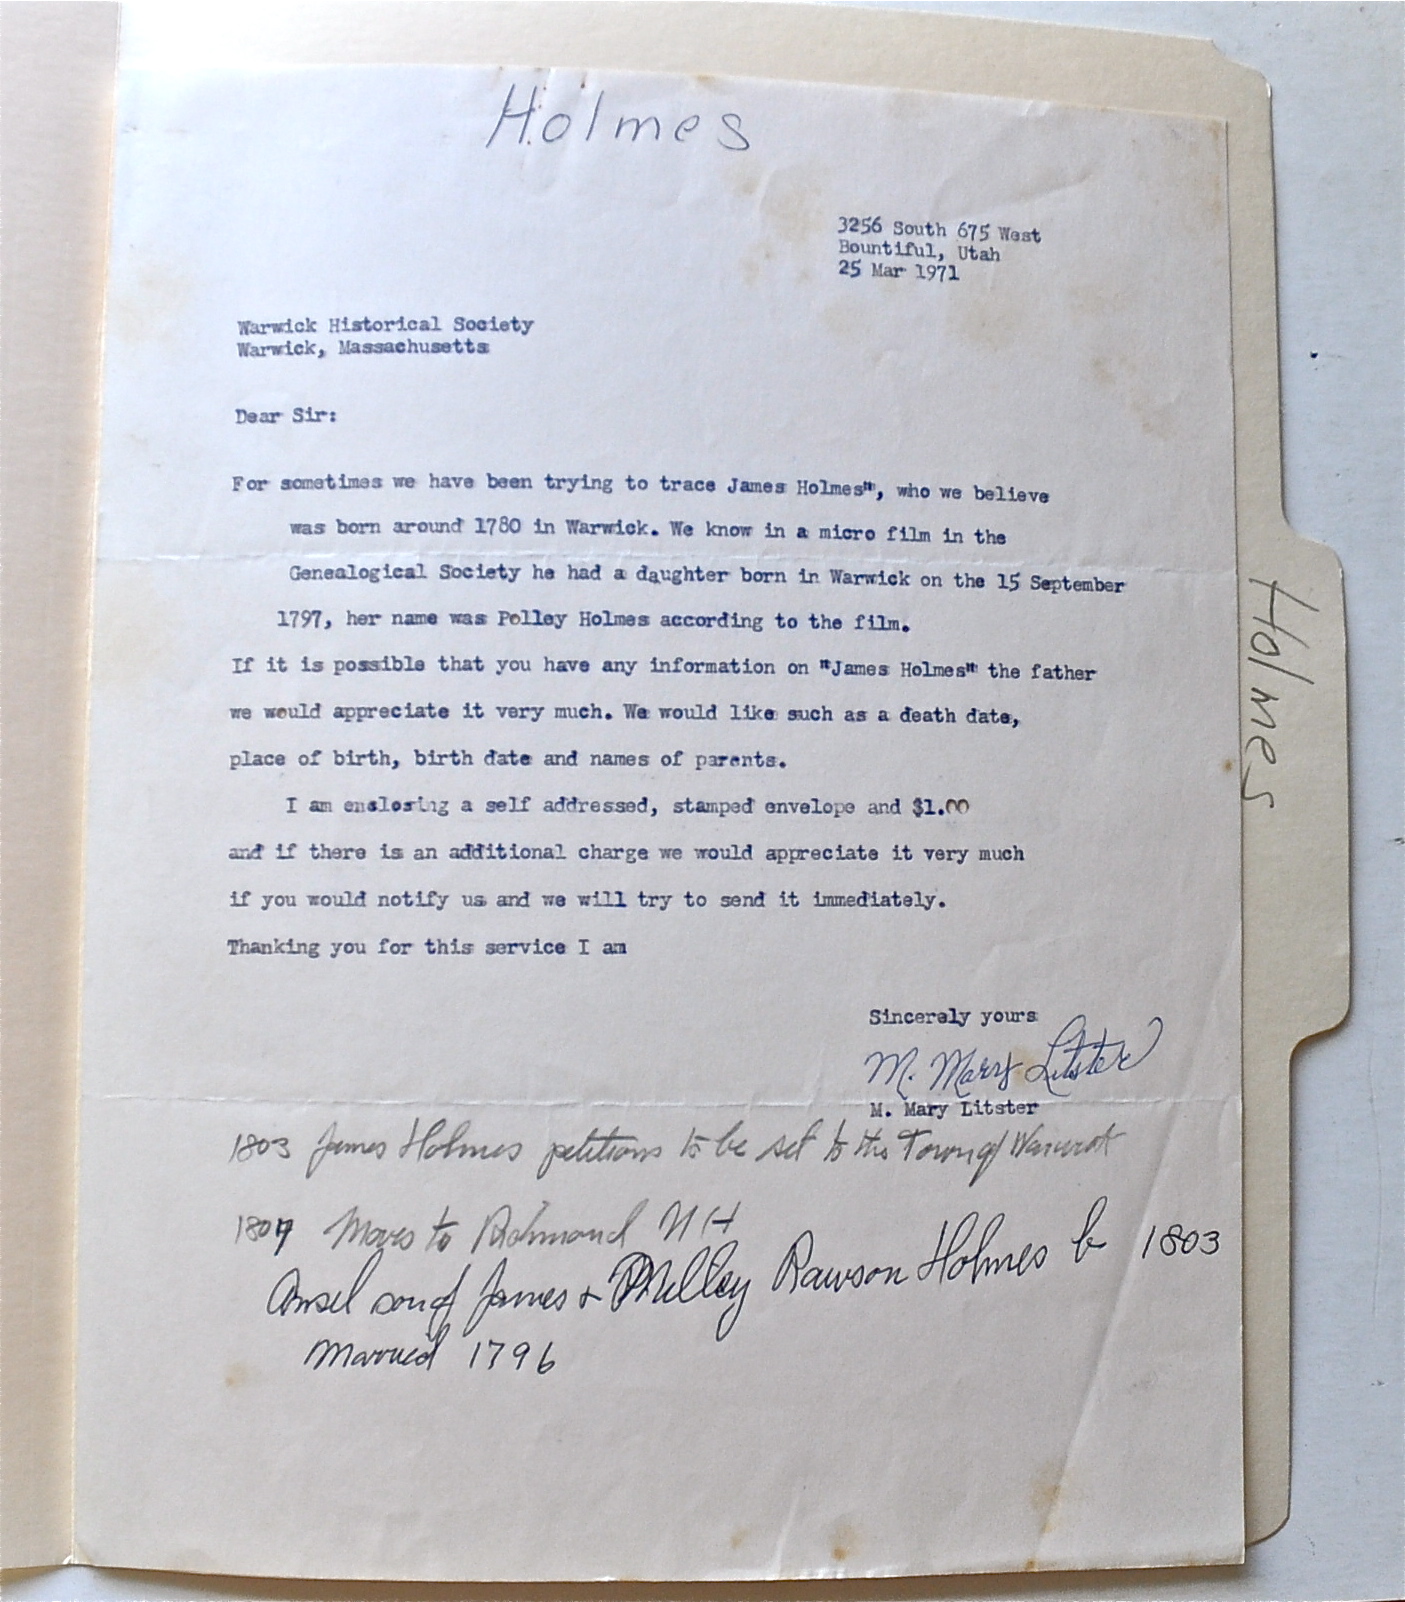 Holmes
3256 South 675 West
Bountiful, Utah
25 Mar 1971
Warwick Historical Society
Warwick, Massachusetts
Dear Sir:
For sometimes we have been trying to trace James Holmes", who we believe
was born around 1780 in Warwick. We know in a micro film in the
Genealogical Society he had a daughter born in Warwick on the 15 September
1797, her name was Polley Holmes according to the film.
If it is possible that you have any information on "James Holmes" the father
we would appreciate it very much. We would like such as a death date,
place of birth, birth date and names of parents.
I am enslosing a self addressed, stamped envelope and $1.00
and if there is an additional charge we would appreciate it very much
if you would notify us and we will try to send it immediately.
Thanking you for this service I am
Sincerely yours
M. Mary Litster
M. Mary Litster
1803 James Holmes petitions to be set to the Town of
Moves to Richmond NH
Ansel son of James & Rawson Holmes b 1803
Married 1796
Holmes